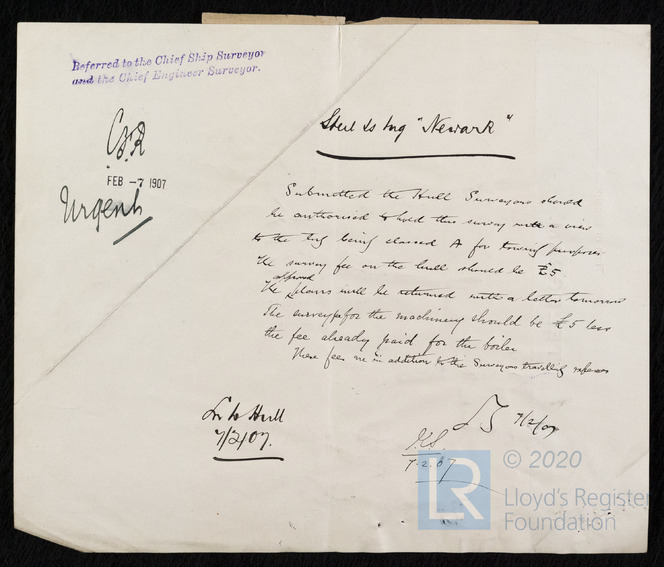 Referred to the Chief Ship Surveyor
and the Chief Engineer Surveyor.
FEB -7 1907
Urgent
Steel Ss tug "Newark"
Submitted the Hull Surveyors should
be authorised to hold this survey with a view
to the tug being classed A for towing purposes
The survey fee on the hull should be £5
approved
The plans will be returned with a letter tomorrow
The survey fee for the machinery should be £5 less
the fee already paid for the boiler
These fees are in addition to the Surveyors travelling expenses
Lr to Hull
7/2/07.
7/2/07
7.2.07
LR
© 2020
Lloyd's Register
Foundation